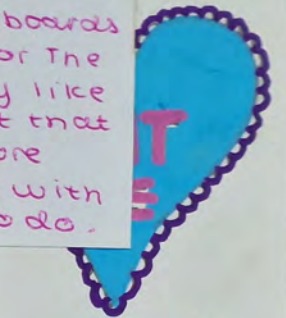 boards
or The
y like
t that
ore
with
o do.
IT
E